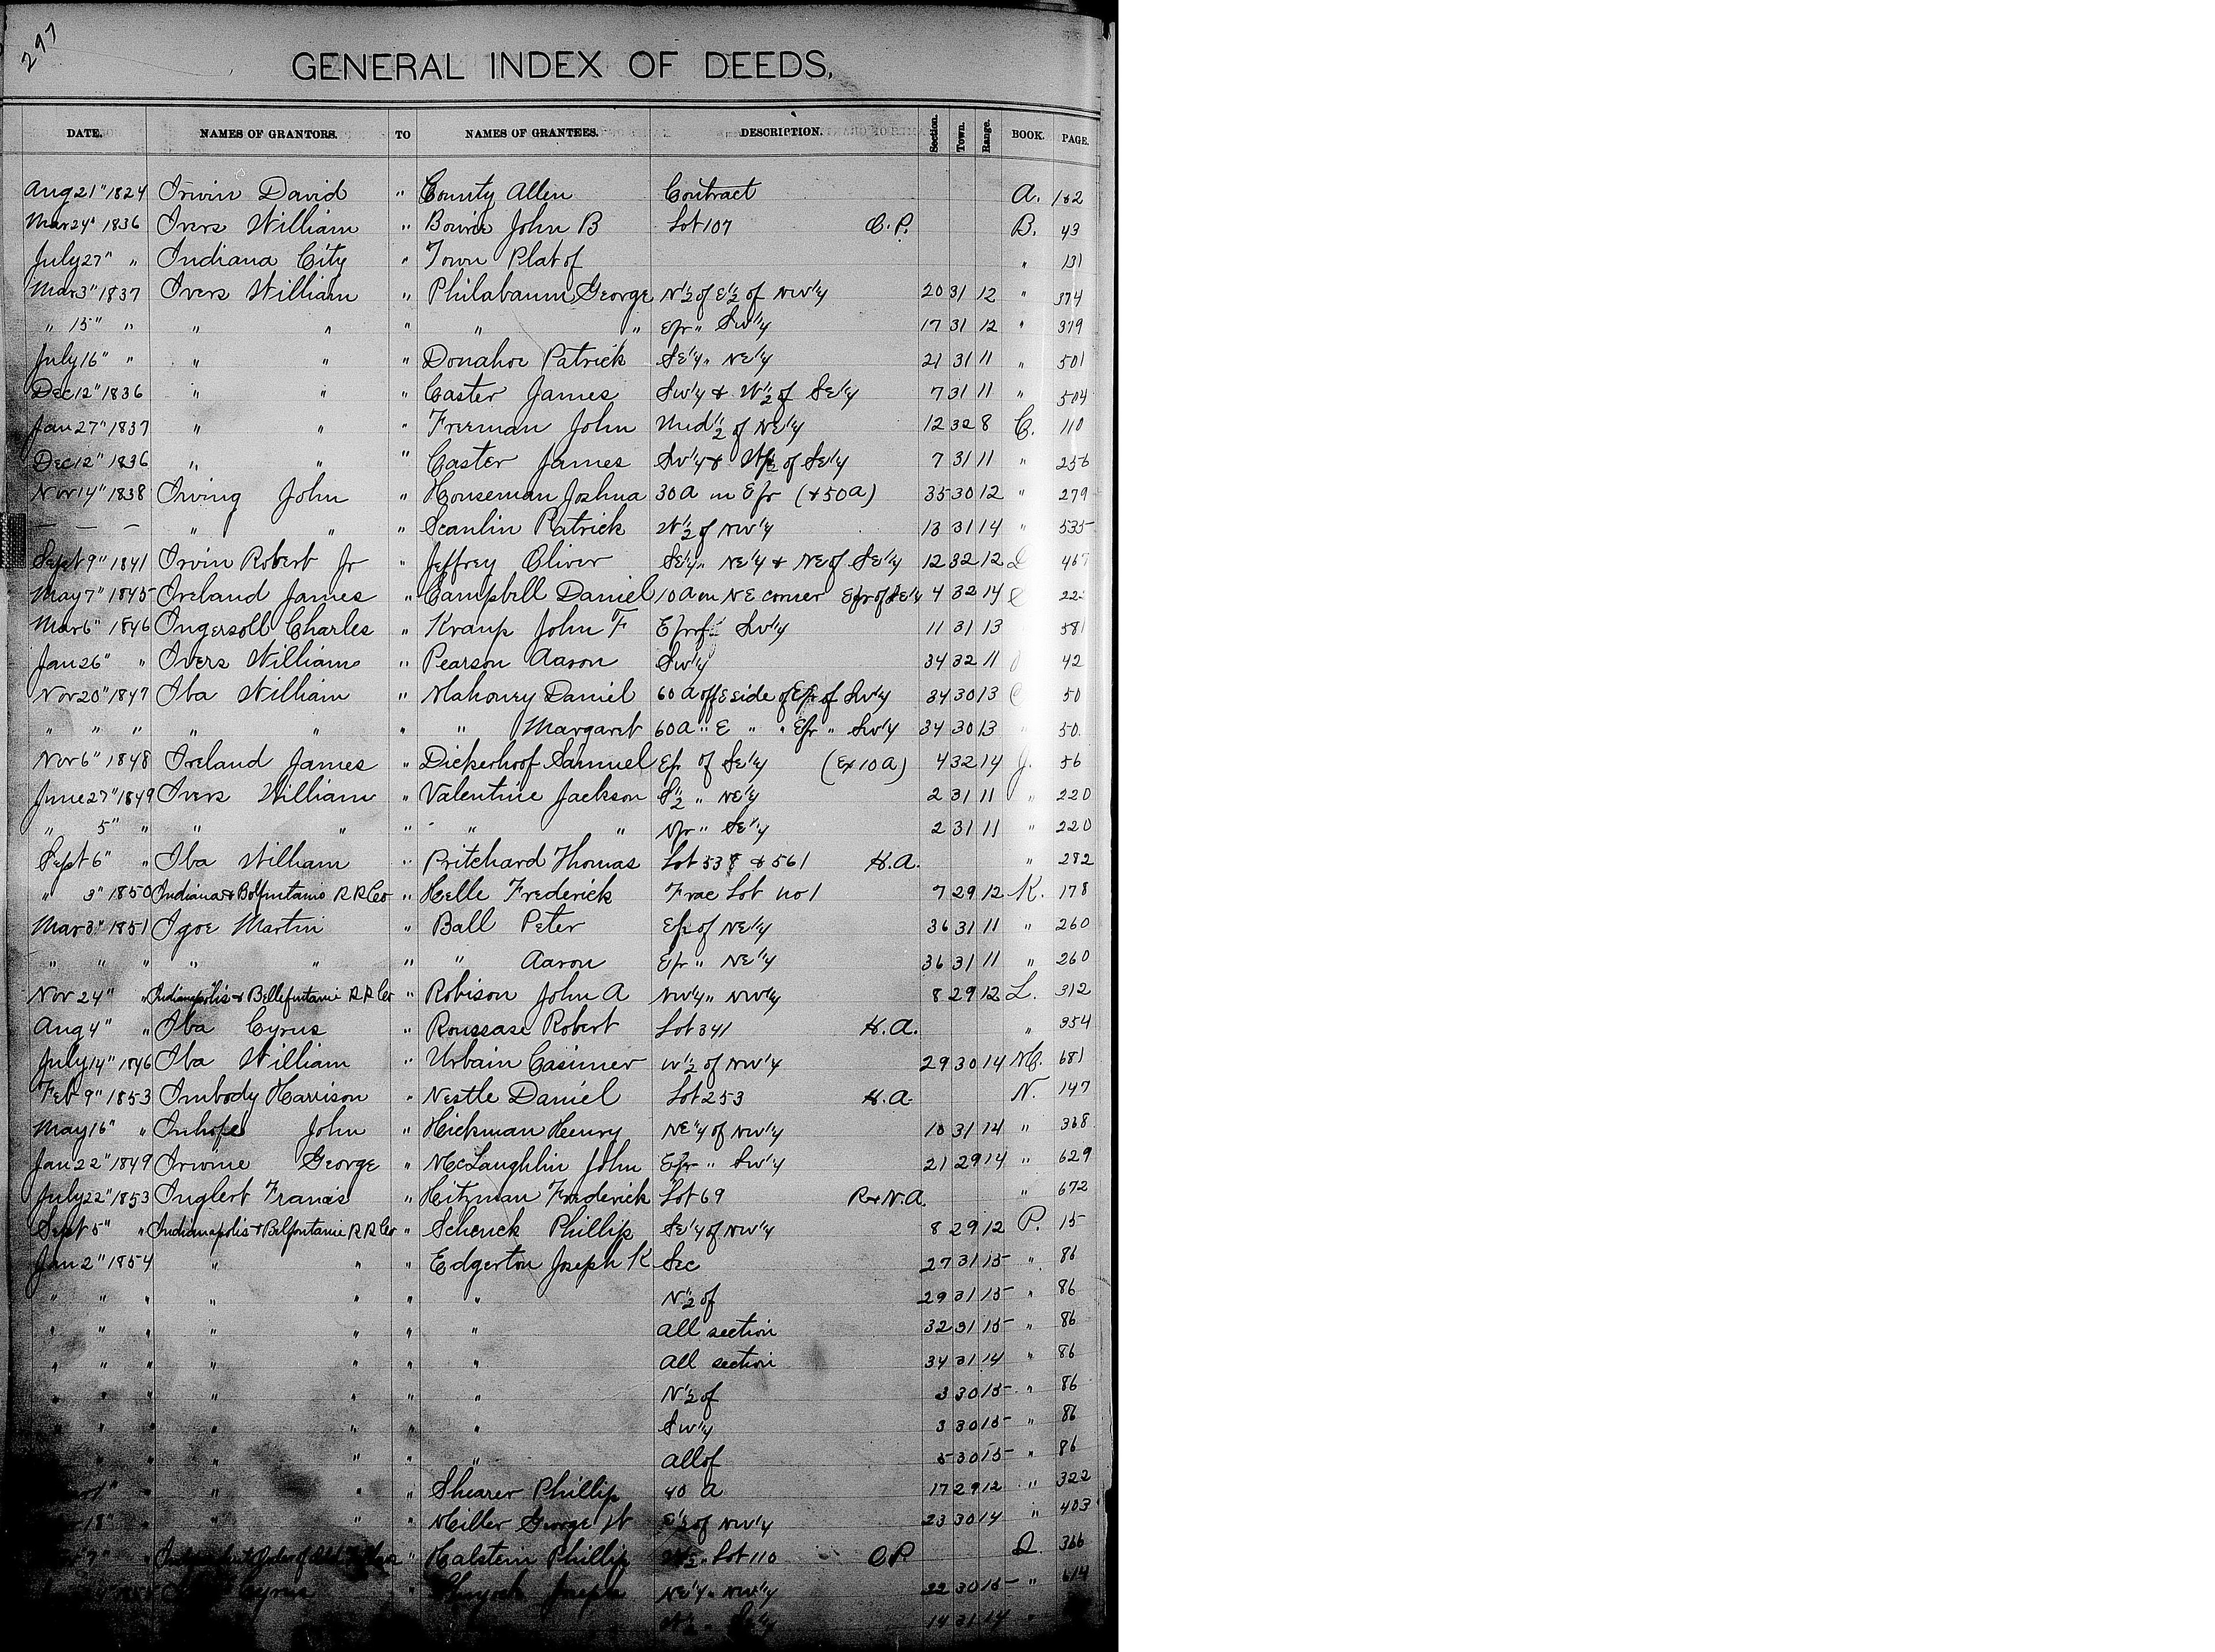 297
GENERAL INDEX OF DEEDS.
DATE. NAMES OF GRANTORS. TO NAMES OF GRANTEES. DESCRIPTION. Section. Town. Range. BOOK. PAGE.
Aug 21" 1824 Irwin David " County Allen Contract A. 162
Mar 24" 1836 Ivers William " Bowie John B Lot 107 O.P. B. 43
July 27" " Indiana City " Town Plat of " 131
Mar 3" 1837 Ivers William " Philabaum George N 1/2 of E 1/2 of NW 1/4 20 31 12 " 374
" 15" " " " " " " Efr " SW 1/4 17 31 12 " 379
July 16" " " " " Donahoe Patrick SE 1/4 " NE 1/4 21 31 11 " 501
Dec 12" 1836 " " " Caster James SW 1/4 & W 1/2 of SE 1/4 7 31 11 " 504
Jan 27" 1837 " " " Freeman John Mid 1/2 of NE 1/4 12 32 8 C. 110
Dec 12" 1836 " " " Caster James SW 1/4 & of SE 1/4 7 31 11 " 256
Nov 14" 1838 Irving John " Houseman Joshua 30 A in Efr (+50 A) 35 30 12 " 279
— — — " " " Scanlin Patrick W 1/2 of NW 1/4 13 31 14 " 535
Sept 9" 1841 Irvin Robert Jr " Jeffrey Oliver SE 1/4 " NE 1/4 & NE of SE 1/4 12 32 12 467
May 7" 1845 Ireland James " Campbell Daniel 10 A in NE corner Efr of SE 1/4 4 32 14
Mar 6" 1846 Ingersoll Charles " Kraup John F Efr of SW 1/4 11 31 13 581
Jan 26" " Ivers William " Pearson Aaron SW 1/4 34 32 11 42
Nov 20" 1847 Iba William " Mahoney Daniel 60 A off E side of Efr of SW 1/4 34 30 13 50
" " " " " " " Margaret 60 A " E " " Efr " SW 1/4 34 30 13 " 50
Nov 6" 1848 Ireland James " Dickerhoof Samuel Efr of SE 1/4 (Ex 10 A) 4 32 14 J. 56
June 27" 1849 Ivers William " Valentine Jackson S 1/2 " NE 1/4 2 31 11 " 220
" 5" " " " " " " Nfr " SE 1/4 2 31 11 " 220
Sept 6" " Iba William " Pritchard Thomas Lot 538 & 561 H.A. " 282
" 3" 1850 Indiana & Bolfintaine R R Co " Helle Frederick Frac Lot no 1 7 29 12 K. 178
Mar 3" 1851 Igoe Martin " Ball Peter Efr of NE 1/4 36 31 11 " 260
" " " " " " " Aaron Efr " NE 1/4 36 31 11 " 260
Nov 24" " Indianapolis & Bellefintaine R R Co " Robison John A NW 1/4 " NW 1/4 8 29 12 L. 312
Aug 4" " Iba Cyrus " Roussase Robert Lot 341 H.A. " 354
July 14" 1846 Iba William " Urbain Casimer W 1/2 of NW 1/4 29 30 14 681
Feb 9" 1853 Imbody Harrison " Nestle Daniel Lot 253 H.A. N. 147
May 16" " Inhofe John " Hickman Henry NE 1/4 of NW 1/4 10 31 14 " 368
Jan 22" 1849 Irwine George " McLaughlin John Efr " SW 1/4 21 29 14 " 629
July 22" 1853 Inglert Francis " Hitzman Frederick Lot 69 R & N.A. " 672
Sept 5" " Indianapolis & Belfontaine R R Co " Schenck Phillip SE 1/4 of NW 1/4 8 29 12 P. 15
Jan 2" 1854 " " " Edgerton Joseph K Sec 27 31 15 " 86
" " " " " " " N 1/2 of 29 31 15 " 86
" " " " " " " all section 32 31 15 " 86
" " " " " " " all section 34 31 14 " 86
" " " " " " N 1/2 of 3 30 15 " 86
" " " " " " SW 1/4 3 30 15 " 86
" " " " " " all of 5 30 15 " 86
" " " " Shearer Phillip 40 A 17 29 12 " 322
18" " " " " Miller George W E 1/2 of NW 1/4 23 30 14 " 403
7" " Independent Order of Odd Fellows " Halstein Phillip " Lot 110 O.P. Q. 366
Cyrus " Joseph NE 1/4 " NW 1/4 22 30 15 " 614
14 31 14 "